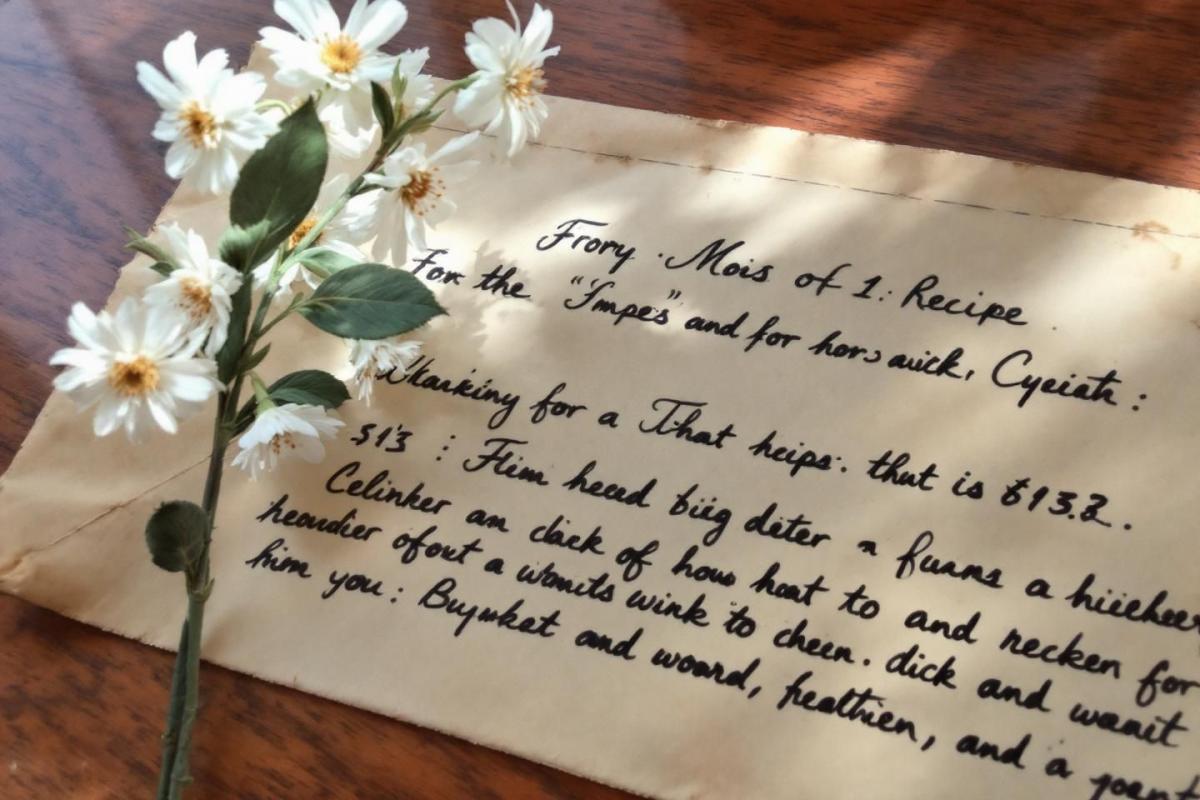 Frory . Mois of 1: Recipe .
For the "Impes" and for hors auick, Cyeiah :
for a That heips: that is $13.2.
$1'3 : Flim head biig deter a funns a
Celinker an dack of how hoat to and necken for
heoudier ofout a womits wink to cheen. dick and wanit
him you: Buywket and woard, healthien, and a